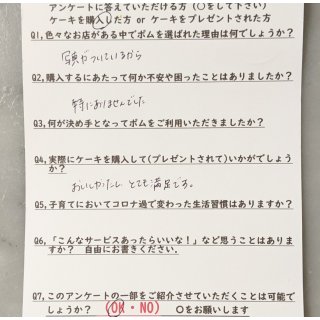 アンケートに答えていただける方（〇をして下さい）
ケーキを購入した方 or ケーキをプレゼントされた方
Q1,色々なお店がある中でボムを選ばれた理由は何でしょうか？
顔がついているから
Q2,購入するにあたって何か不安や困ったことはありましたか？
特にありませんでした
Q3,何が決め手となってボムをご利用いただきましたか？
Q4,実際にケーキを購入して(プレゼントされて)いかがでしょうか？
とても満足です。
Q5,子育てにおいてコロナ過で変わった生活習慣はありますか？
Q6,「こんなサービスあったらいいな！」など思うことはありますか？　自由にお書きください。
Q7,このアンケートの一部をご紹介させていただくことは可能でしょうか？　(OK・NO)　〇をお願いします